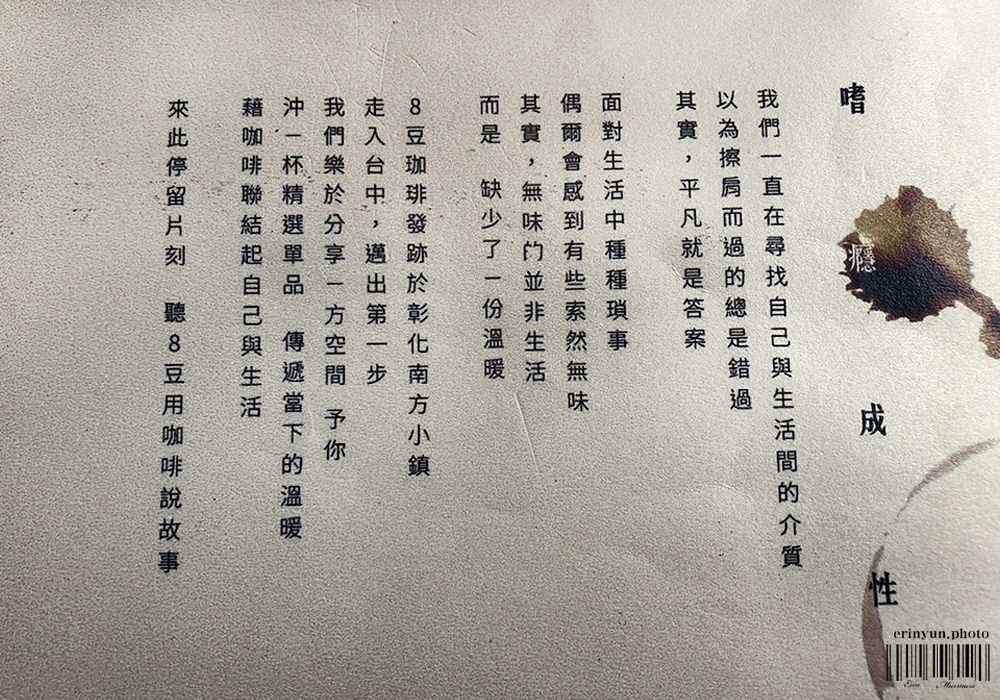 嗜癮成性
我們一直在尋找自己與生活間的介質
以為擦肩而過的總是錯過
其實，平凡就是答案
面對生活中種種瑣事
偶爾會感到有些索然無味
其實，無味的並非生活
而是 缺少了一份溫暖
8豆珈琲發跡於彰化南方小鎮
走入台中，邁出第一步
我們樂於分享一方空間 予你
沖一杯精選單品 傳遞當下的溫暖
藉咖啡聯結起自己與生活
來此停留片刻 聽8豆用咖啡說故事
erinyun.photo